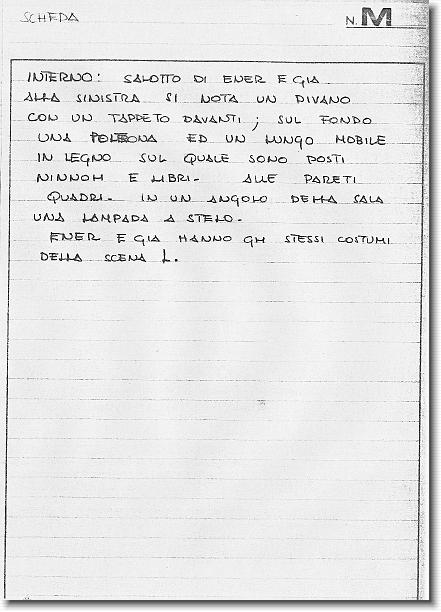 SCHEDA
N. M
INTERNO: SALOTTO DI ENER E GIA
ALLA SINISTRA SI NOTA UN DIVANO
CON UN TAPPETO DAVANTI; SUL FONDO
UNA POLTRONA ED UN LUNGO MOBILE
IN LEGNO SUL QUALE SONO POSTI
NINNOLI E LIBRI. ALLE PARETI
QUADRI. IN UN ANGOLO DELLA SALA
UNA LAMPADA A STELO.
ENER E GIA HANNO GLI STESSI COSTUMI
DELLA SCENA L.